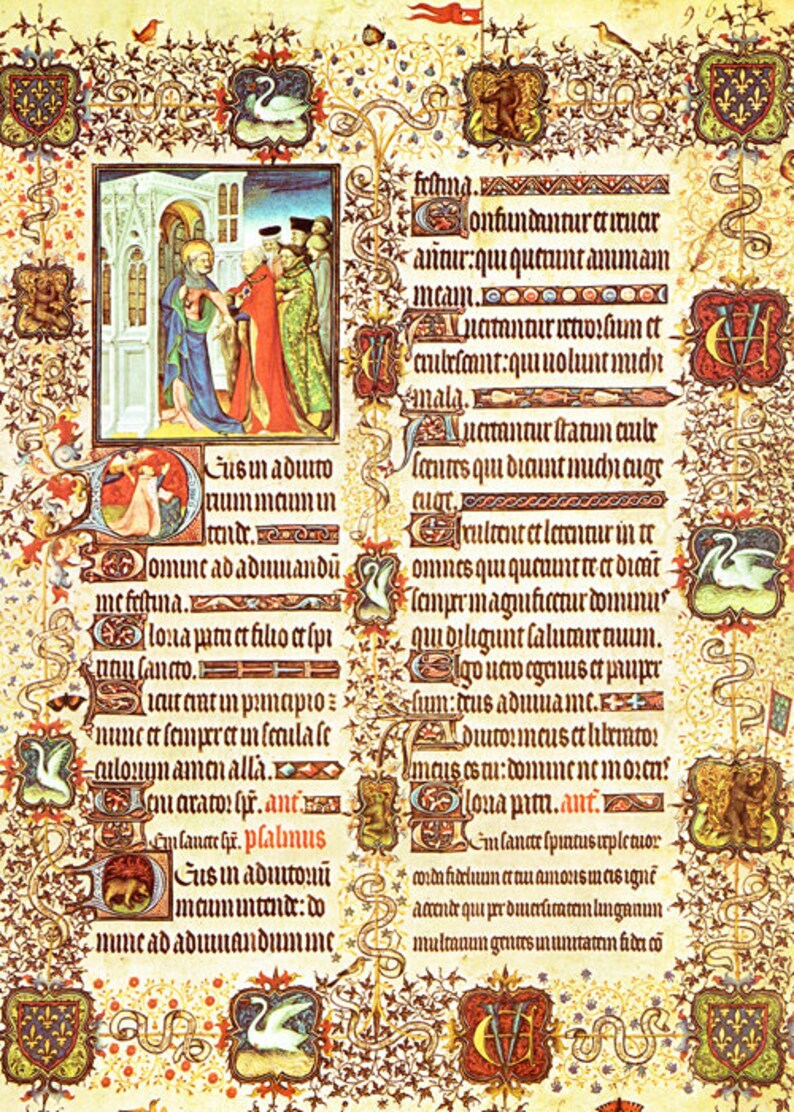 96
Deus in adiuto
rium meum in
tende.
Domine ad adiuuandū
me festina.
Gloria patri et filio et spi
ritui sancto.
Sicut erat in principio :
nunc et semper et in secula se
culorum amen allā.
Veni creator sp̄c. ant̄.
Veni sancte sp̄c. psalmus
Deus in adiutoriū
meum intende: do
mine ad adiuuandum me
festina.
Confundantur et reuere
antur: qui querunt animam
meam.
Auertantur retrorsum et
erubescant: qui uolunt michi
mala.
Auertantur statim erube
scentes qui dicunt michi euge
euge.
Exultent et letentur in te
omnes qui querunt te et dicāt
semper magnificetur dominus
qui diligunt salutare tuum.
Ego uero egenus et pauper
sum: deus adiuua me.
Adiutor meus et liberator
meus es tu: domine ne moreris
Gloria patri. ant̄.
Veni sancte spiritus reple tuor
corda fidelium et tui amoris in eis ignē
accende qui per diuersitatem linguarum
multarum gentes in unitatem fidei cō